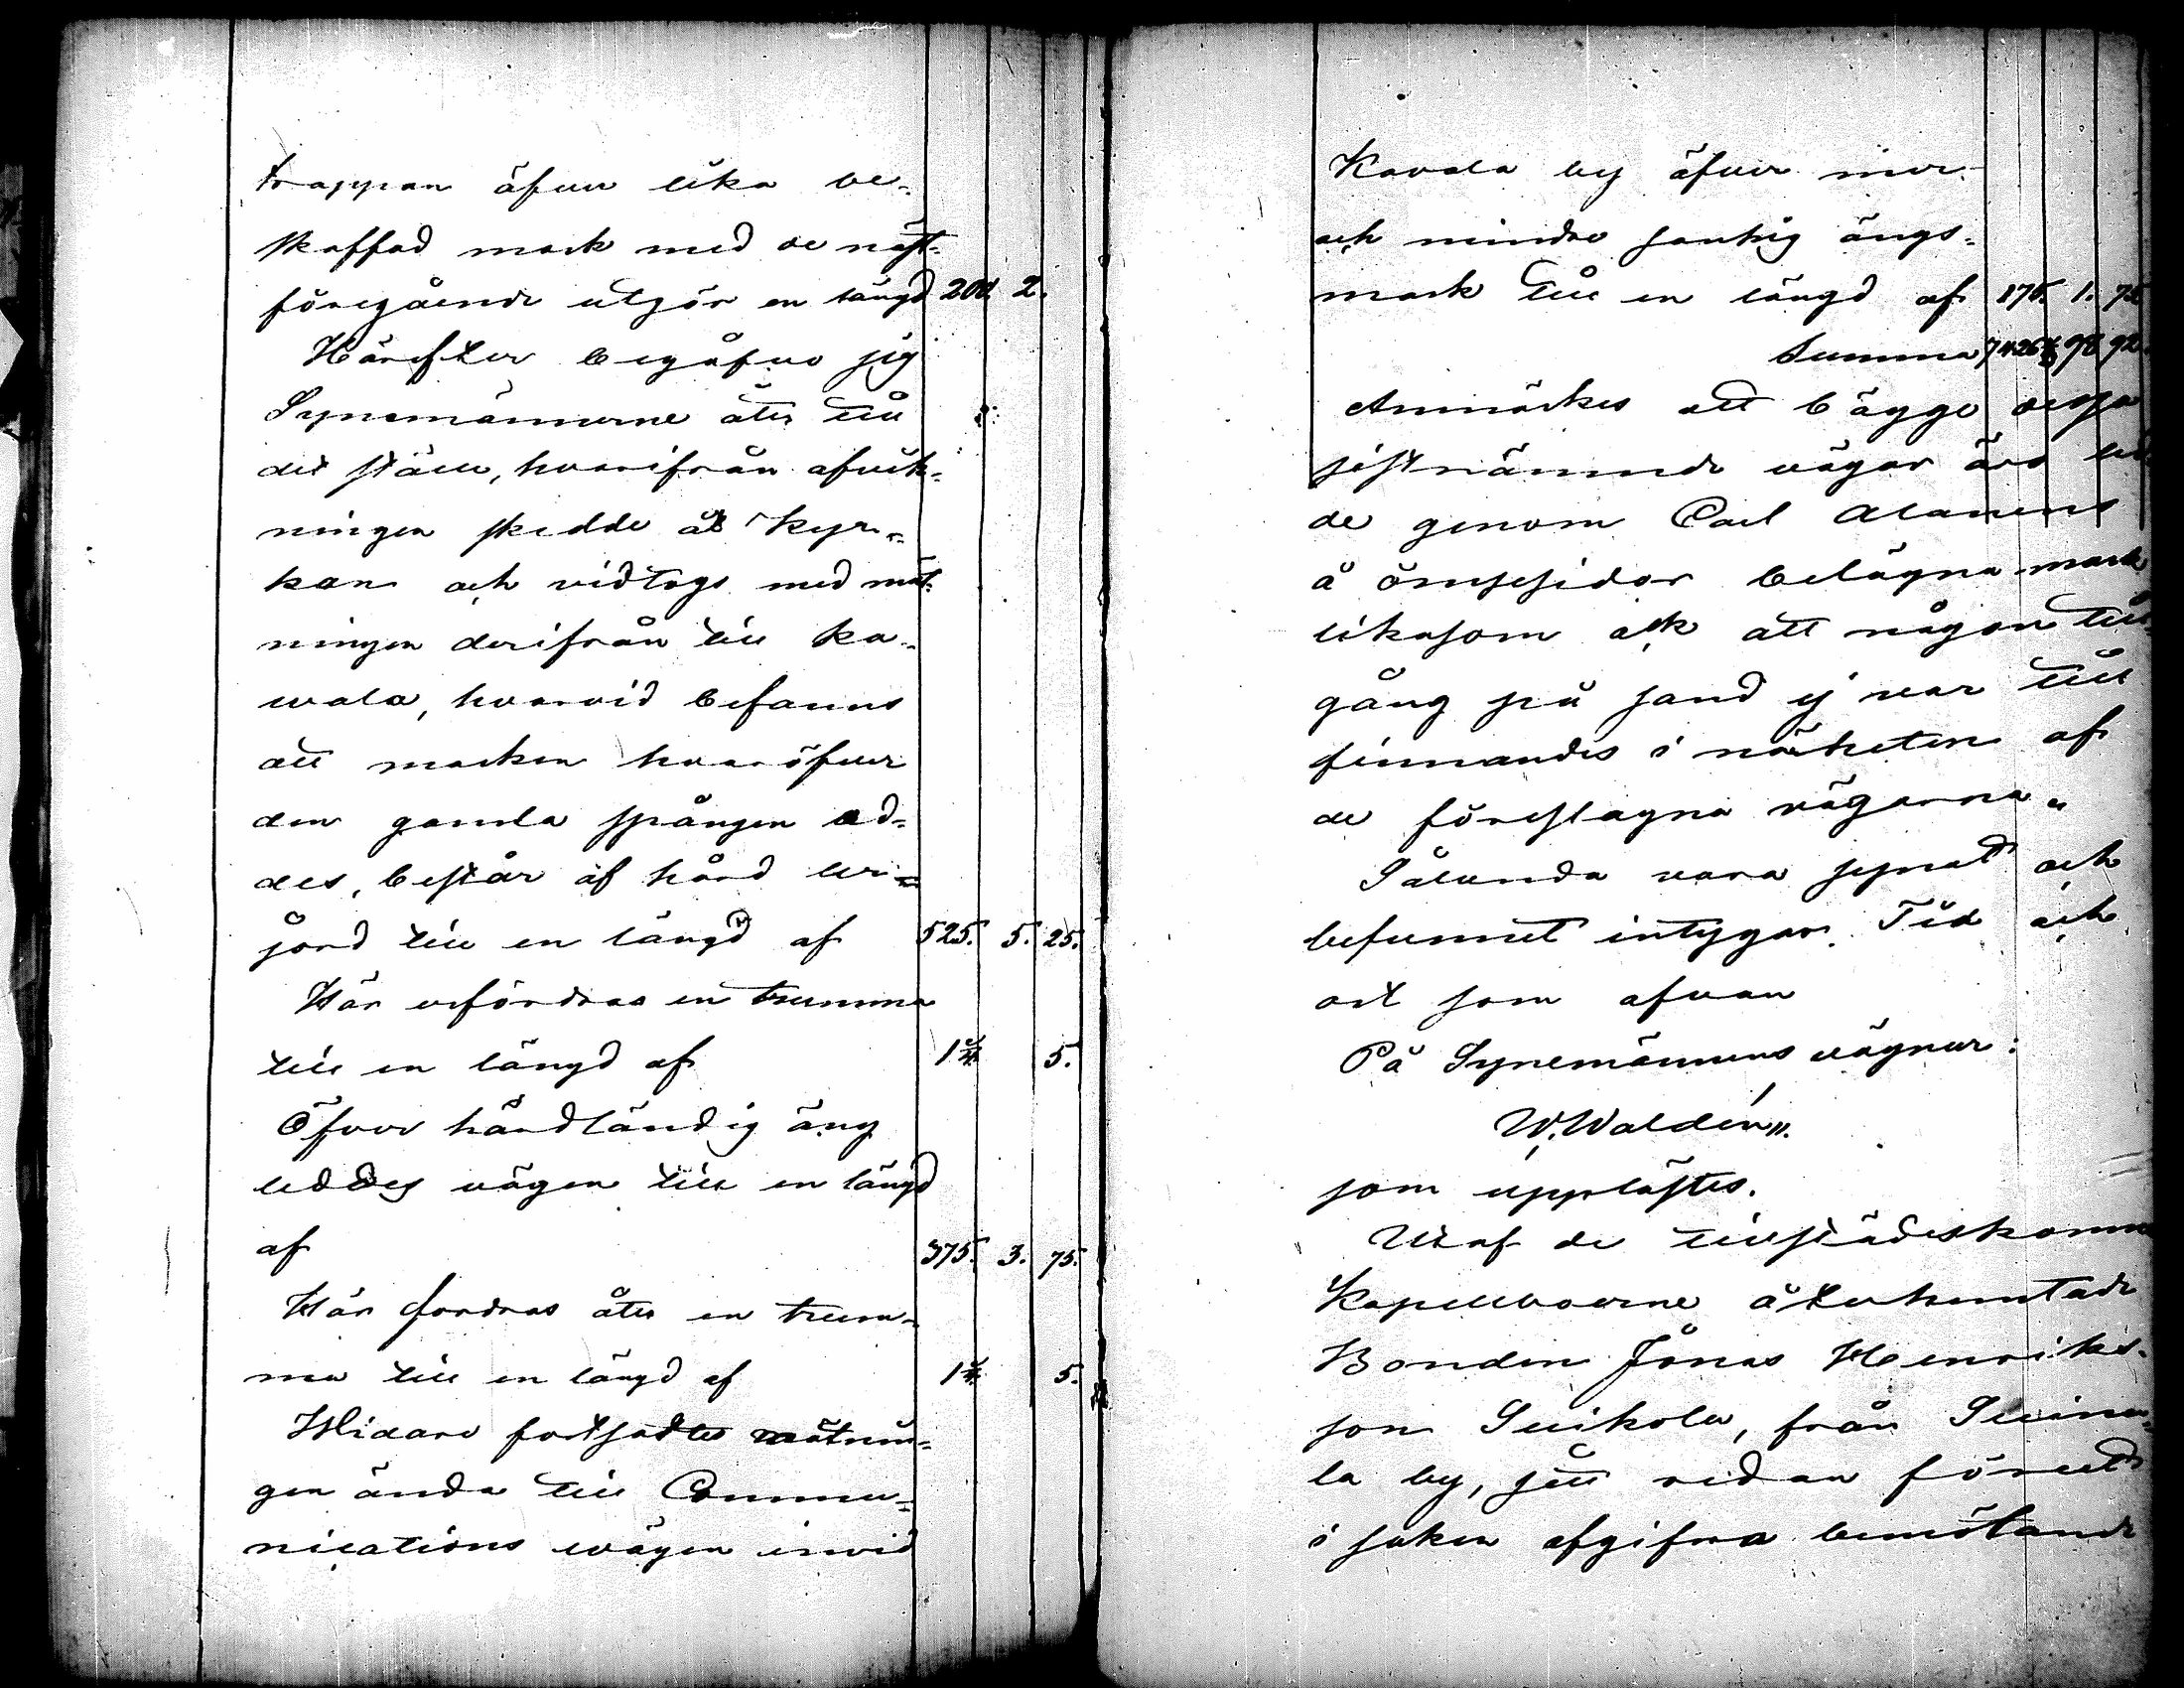 trappan äfven lika be-
skaffad mark med de näst-
föregående utgör en längd 200. 2.
Härefter begåfvo sig
Synemännerne åter till
det ställe, hvarifrån afvik-
ningen skedde åt kyr-
kan och vidtogs med mät-
ningen derifrån till Ka-
wala, hvarvid befanns
att marken hvaröfver
den gamla spången led-
des, består af hård ler-
jord till en längd af 525. 5. 25.
Här erfordras en trumma
till en längd af 5.
Öfver hårdländig äng
leddes vägen till en längd
af 375. 3. 75.
Här fordras åter en trum-
ma till en längd af 5.
Widare fortsattes mätnin-
gen ända till Commu-
nications wägen invid
Kavala by äfver mer
och mindre sankig ängs-
mark till en längd af 175. 1. 75
Summa 7426 98 92.
Anmärkes att bägge dessa
sistnämnde vägar äro led-
de genom Carl Alanens
å ömsesidor belägna mark
likasom ock att någon till-
gång på sand ej var till
finnandes i närheten af
de föreslagna vägarna.
Sålunda vara synat och
befunnit intygar. Tid och
ort som ofvan
På Synemännens vägnar:
W. Waldén".
som upplästes.
Utaf de tillstädeskomne
Kapellboerne återhemtade
Bonden Jonas Henriks-
son Suikola, från Suina-
la by, sitt redan förut
i saken afgifna bemötande